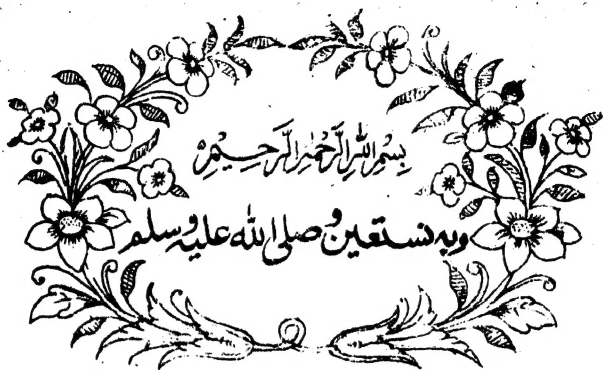 بِسْمِ اللّٰهِ الرَّحْمٰنِ الرَّحِيْمِ
وبه نستعين و صلى الله عليه وسلم